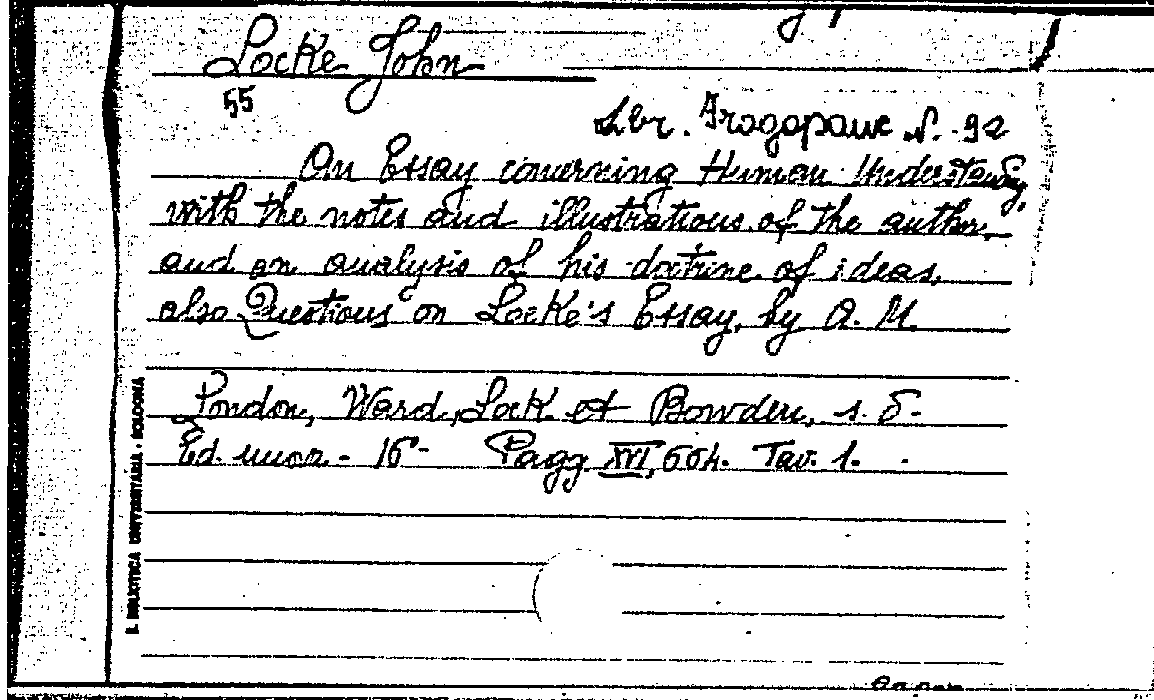 Locke John
55
Libr. Fragapane N. 92
An Essay concerning Human Understanding,
with the notes and illustrations of the author,
and an analysis of his doctrine of ideas,
also Questions on Locke's Essay, by A. M.
London, Ward, Lock et Bowden, s. d.
Ed. nuova - 16°- Pagg XVI, 664. Tav. 1.
R. BIBLIOTECA UNIVERSITARIA - BOLOGNA